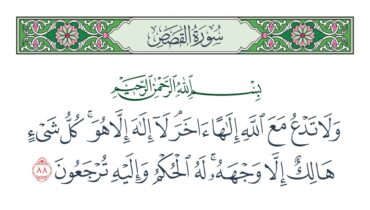 سُورَةُ القَصَصِ
بِسْمِ اللَّهِ الرَّحْمَٰنِ الرَّحِيمِ
وَلَا تَدْعُ مَعَ اللَّهِ إِلَٰهًا ءَاخَرَ ۘ لَا إِلَٰهَ إِلَّا هُوَ ۚ كُلُّ شَىْءٍ
هَالِكٌ إِلَّا وَجْهَهُۥ ۚ لَهُ الْحُكْمُ وَإِلَيْهِ تُرْجَعُونَ ٨٨